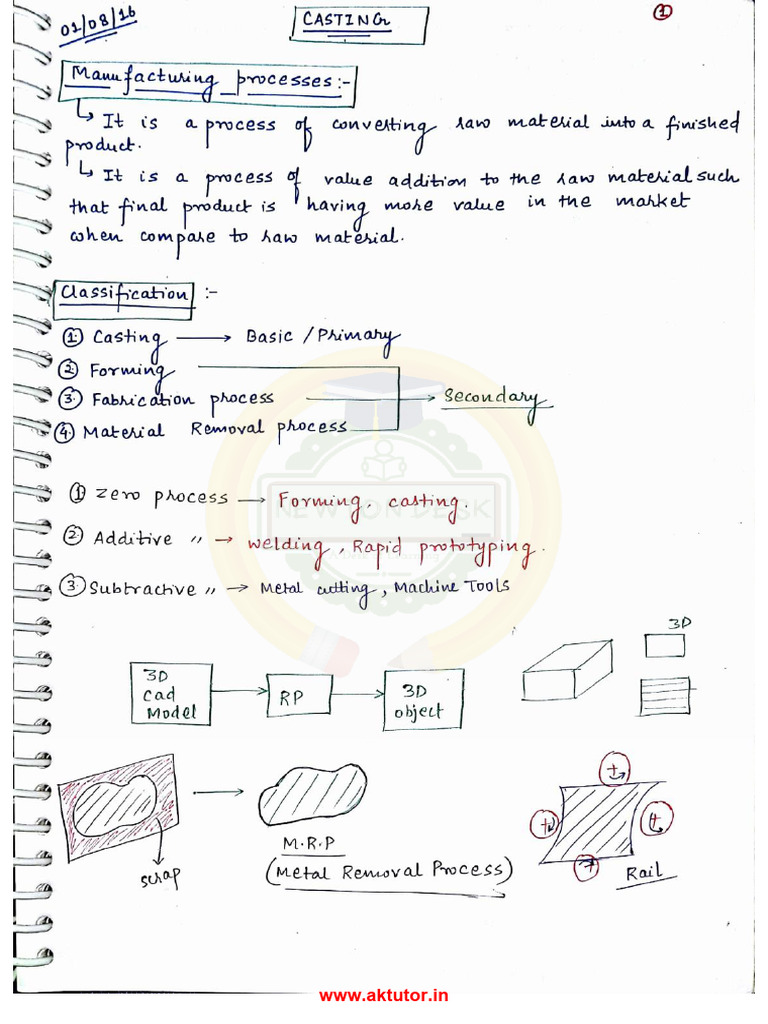 01/08/16
CASTING
1
Manufacturing processes:-
↳ It is a process of converting raw material into a finished
product.
↳ It is a process of value addition to the raw material such
that final product is having more value in the market
when compare to raw material.
Classification :-
① Casting → Basic / Primary
② Forming
③ Fabrication process → Secondary
④ Material Removal process
① Zero process → Forming, casting.
NEWTON DESK
② Additive 〃 → Welding, Rapid prototyping.
③ Subtractive 〃 → Metal cutting, Machine Tools
3D
3D
Cad
Model
RP
3D
object
scrap
M.R.P
(Metal Removal Process)
Rail
www.aktutor.in